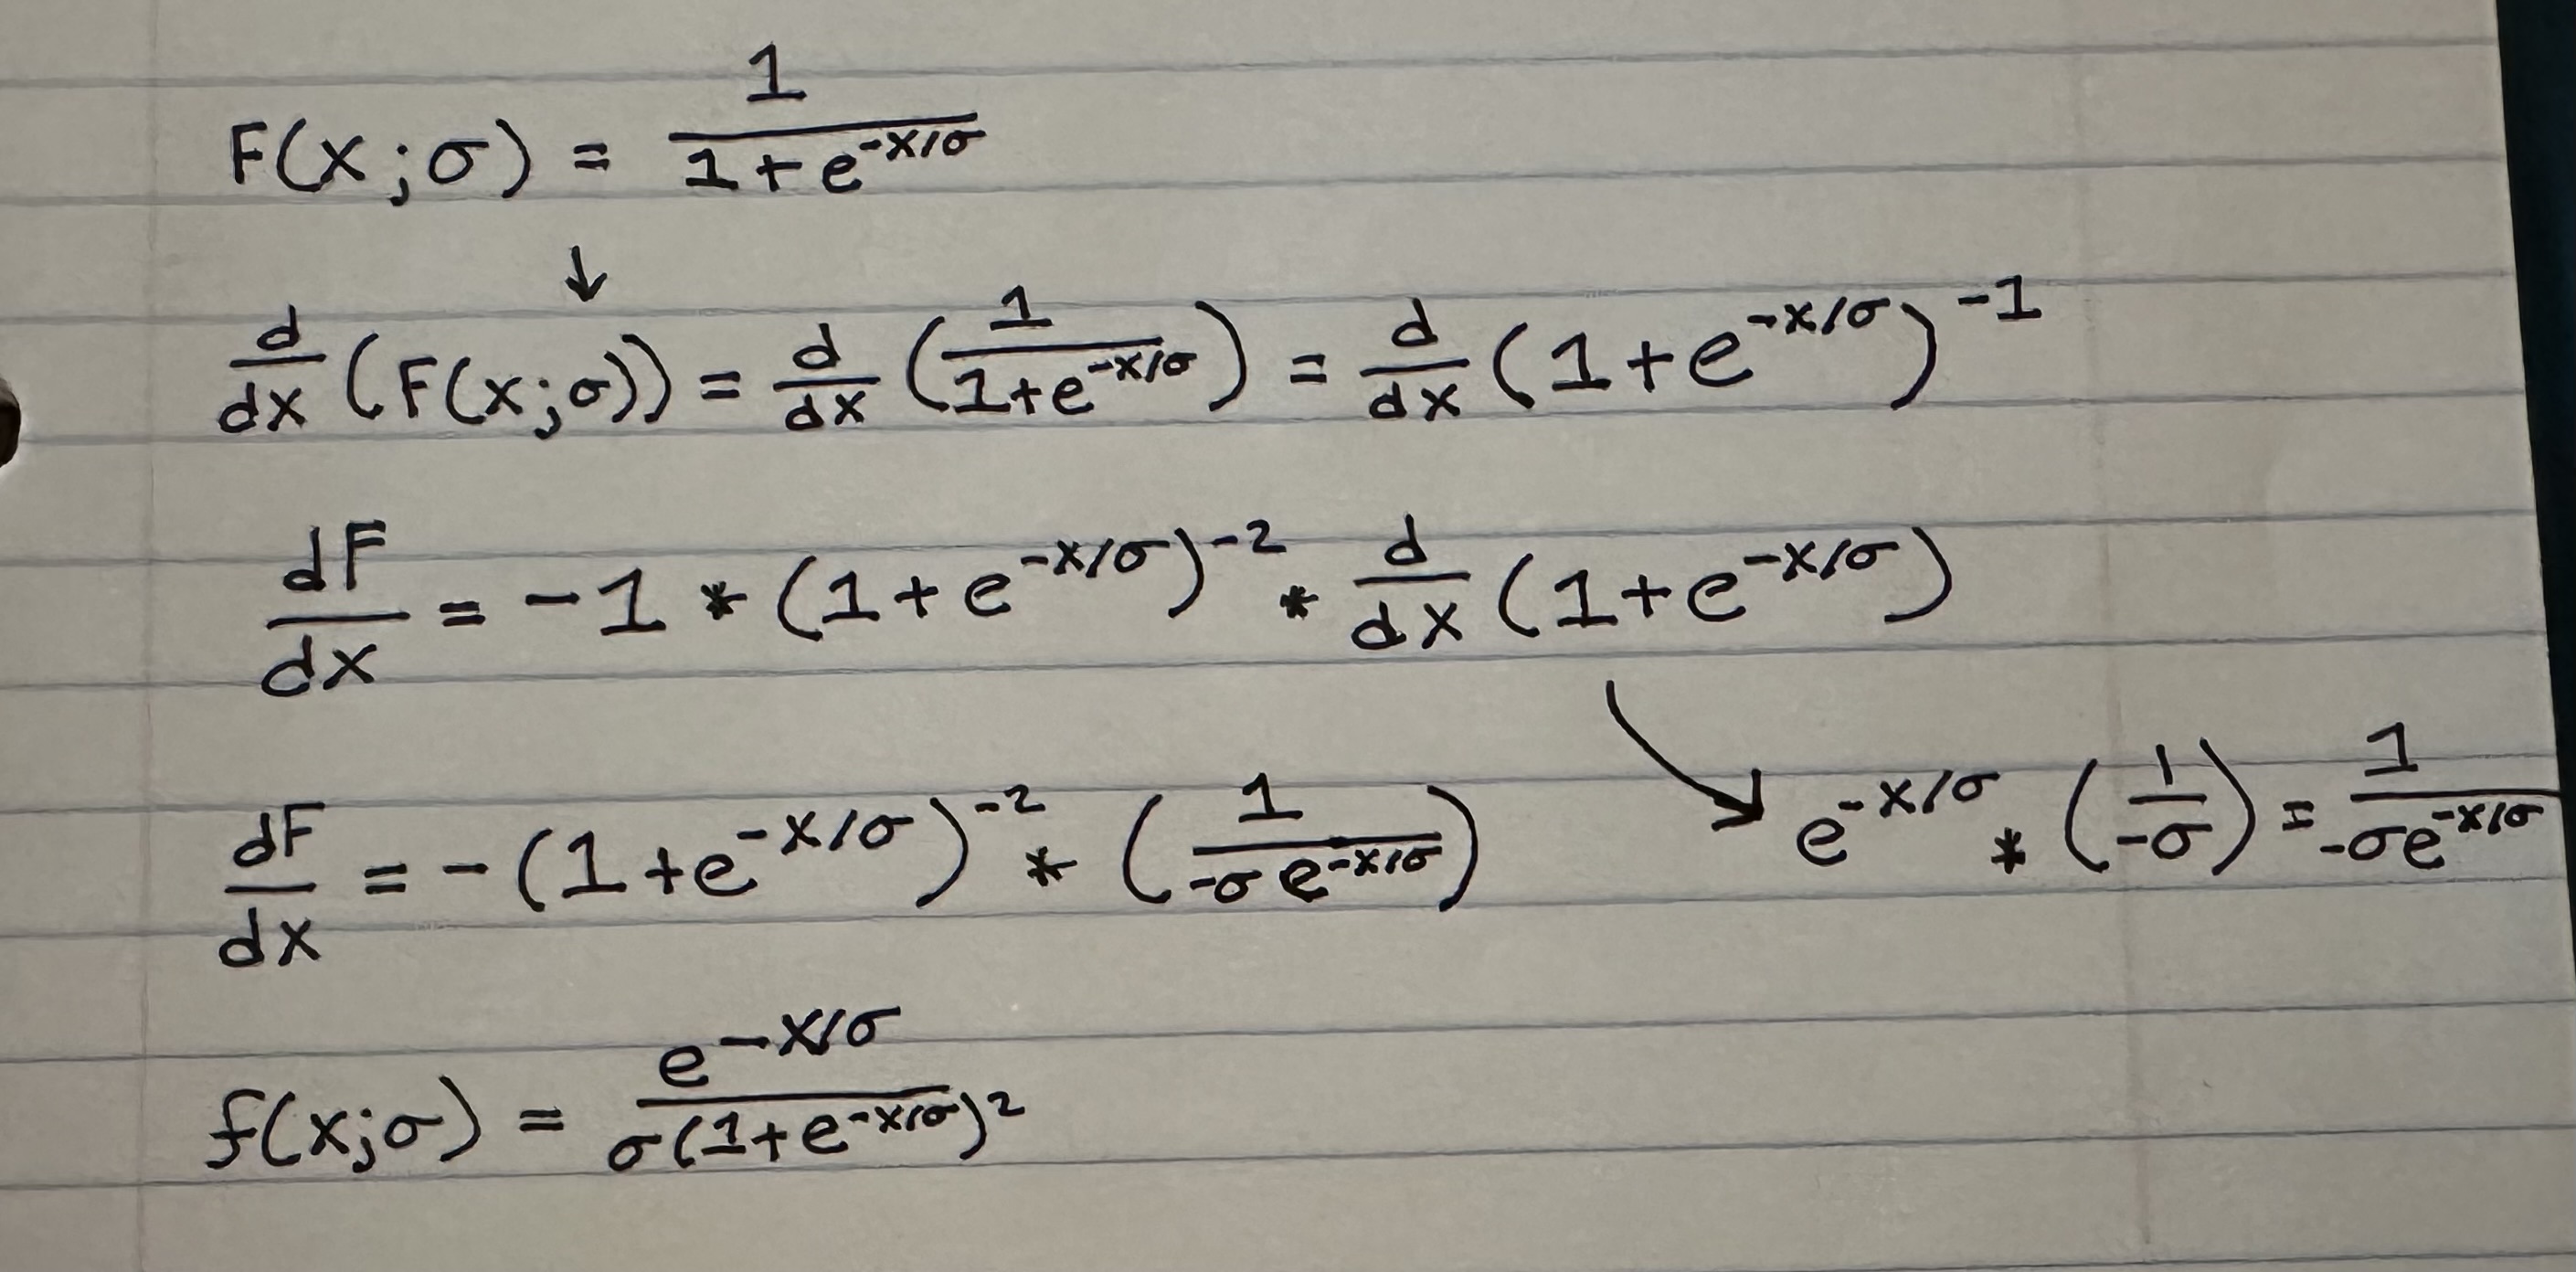 F(x;σ) = 1/(1+e^(-x/σ))
↓
d/dx (F(x;σ)) = d/dx (1/(1+e^(-x/σ))) = d/dx (1+e^(-x/σ))^(-1)
dF/dx = -1 * (1+e^(-x/σ))^(-2) * d/dx (1+e^(-x/σ))
dF/dx = -(1+e^(-x/σ))^(-2) * (1/(-σe^(-x/σ))) ↘ e^(-x/σ) * (1/(-σ)) = 1/(-σe^(-x/σ))
f(x;σ) = e^(-x/σ)/(σ(1+e^(-x/σ))^2)